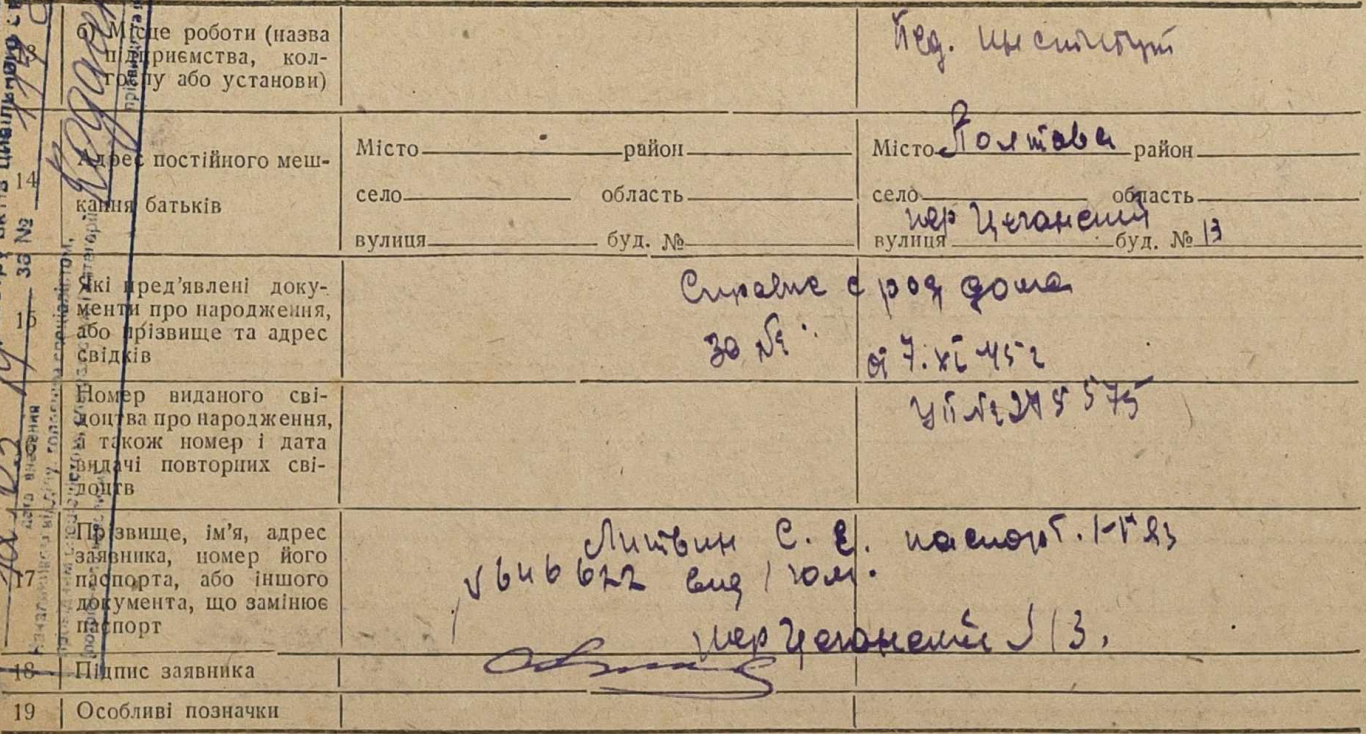 13 б) Місце роботи (назва
підприємства, кол-
госпу або установи)
Пед. институт
14 Адрес постійного меш-
кання батьків
Місто район
село область
вулиця буд. №
Місто Полтава район
село область
вулиця пер Цеганский буд. № 13
15 Які пред'явлені доку-
менти про народження,
або прізвище та адрес
свідків
Справка с род дома
за №
от 7.XI 45 г
Номер виданого сві-
доцтва про народження,
а також номер і дата
видачі повторних сві-
доцтв
17 Прізвище, ім'я, адрес
заявника, номер його
паспорта, або іншого
документа, що замінює
паспорт
Литвин С. Е. паспорт.
646622 выд 1 гом.
пер Цеганский 13.
18 Підпис заявника
19 Особливі позначки
за №